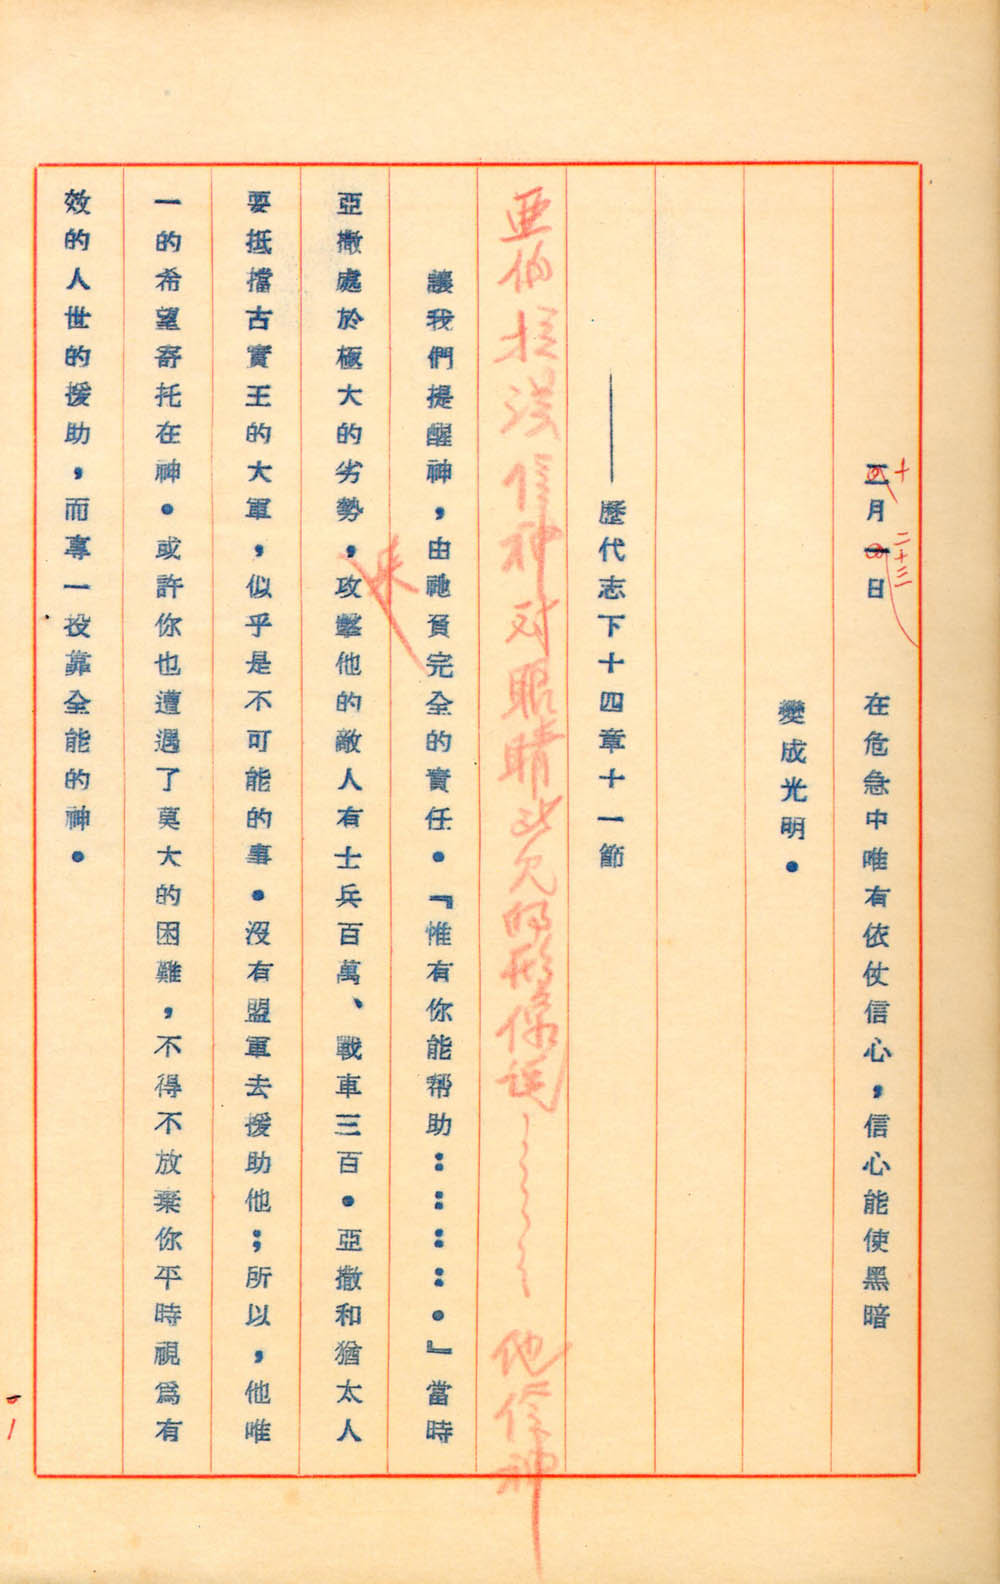 十
二十三
三月一日 在危急中唯有依仗信心，信心能使黑暗
變成光明。
——歷代志下十四章十一節
亚伯拉 信神对眼睛 见的形像 他信神
讓我們提醒神，由祂負完全的責任。『惟有你能帮助：：：：。』當時
來
亞撒處於極大的劣勢，攻擊他的敵人有士兵百萬、戰車三百。亞撒和猶太人
要抵擋古實王的大軍，似乎是不可能的事。沒有盟軍去援助他；所以，他唯
一的希望寄托在神。或許你也遭遇了莫大的困難，不得不放棄你平時視爲有
效的人世的援助，而專一投靠全能的神。